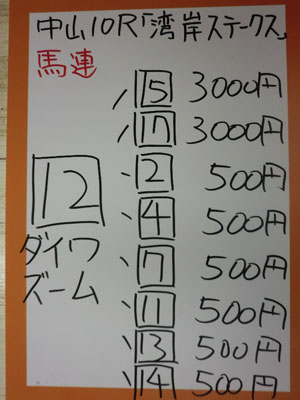 中山10R「湾岸ステークス」
馬連
12
ダイワ
ズーム
15 3000円
17 3000円
2 500円
4 500円
7 500円
11 500円
13 500円
14 500円